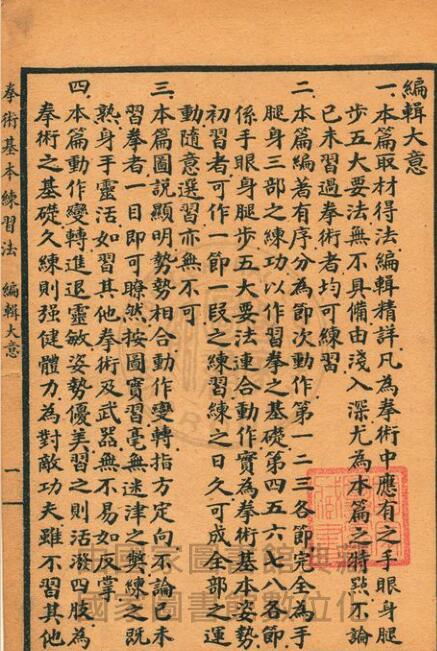 編輯大意
一.本篇取材得法.編輯精詳.凡為拳術中應有之手眼身腿
步五大要法.無不具備.由淺入深.尤為本篇之特點.不論
已未習過拳術者.均可練習
二.本篇編著有序.分為節次動作.第一二三各節.完全為手
腿身三部之練功.以作習拳之基礎.第四五六七八各節.
係手眼身腿步五大要法連合動作.實為拳術基本姿勢.
初習者可作一節一段之練習.練之日久.可成全部之運
動.隨意選習.亦無不可
三.本篇圖說顯明.勢勢相合.動作變轉.指方定向.不論已未
習拳者.一目即可瞭然.按圖實習.毫無迷津之弊.練之既
熟.身手靈活.如習其他拳術及武器.無不易如反掌
四.本篇動作變轉.進退靈敏.姿勢優美.習之則活潑四肢.為
拳術之基礎.久練則强健體力.為對敵功夫.雖不習其他
拳術基本練習法 編輯大意 一
中國國家圖書館典藏
國家圖書館數位化